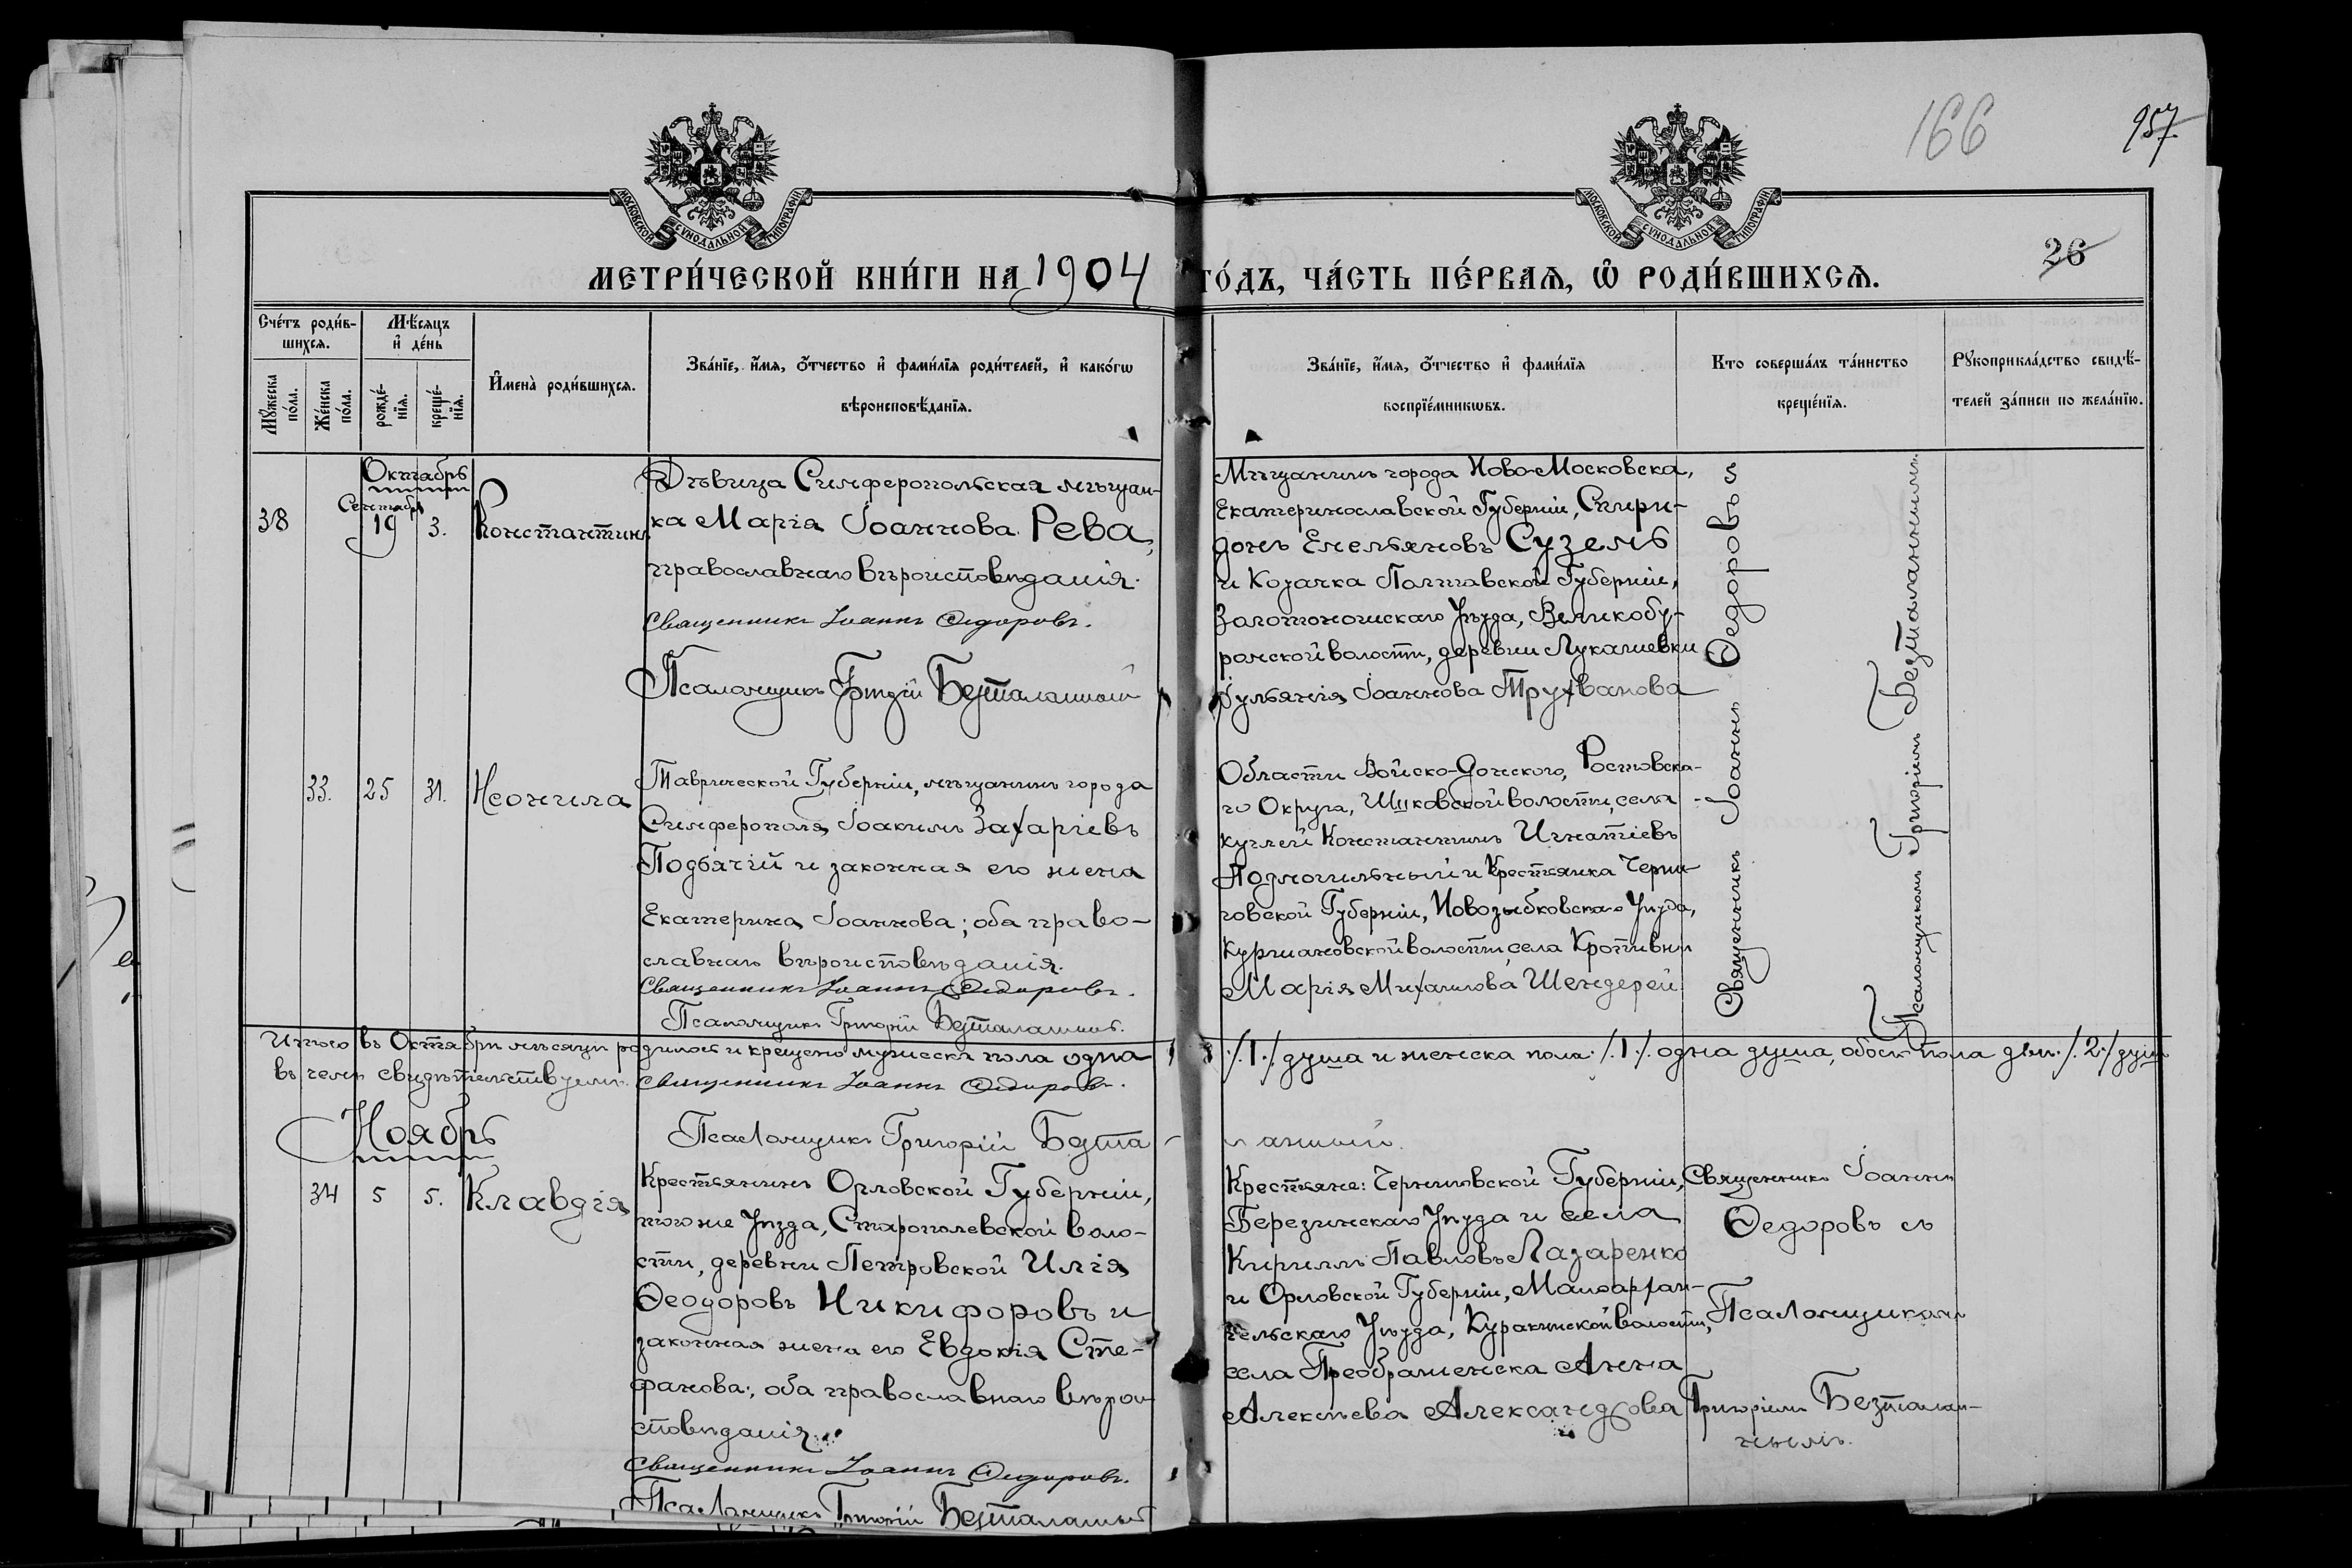 166
957
26
МОСКОВСКОЙ СѴНОДАЛЬНОЙ ТИПОГРАФІИ
МОСКОВСКОЙ СѴНОДАЛЬНОЙ ТИПОГРАФІИ
МЕТРИ́ЧЕСКОЙ КНИ́ГИ НА 1904 ГО́ДЪ, ЧА́СТЬ ПЕ́РВАЯ, Ѽ РОДИ́ВШИХСЯ.
Сче́тъ роди́в-
шихся.
Мѣ́сяцъ
и҆ де́нь
Мꙋжеска по́ла.
Же́нска по́ла.
рожде́-
нїя.
креще́-
нїя.
И҆мена̀ роди́вшихся.
Зва́нїе, и҆́мя, ѻ҆́тчество и҆ фами́лїя роди́телей, и҆ како́гѡ
вѣроисповѣ́данїя.
Зва́нїе, и҆́мя, ѻ҆́тчество и҆ фами́лїя
воспрїе́мникѡвъ.
Кто соверша́лъ та́инство
креще́нїя.
Рꙋкоприкла́дство свидѣ́-
телей за́писи по жела́нїю.
Октябрь
Сентябрь
38
19
3.
Константинъ
Дѣвица Симферопольская мѣщан-
ка Марія Іоаннова Рева,
православнаго вѣроисповѣданія.
Священникъ Іоаннъ Ѳедоровъ.
Псаломщикъ Григорій Безталанный
Мѣщанинъ города Ново-Московска,
Екатеринославской Губерніи, Спири-
донъ Емельяновъ Суземъ
и Козачка Полтавской Губерніи,
Золотоношскаго Уѣзда, Великобу-
ромской волости, деревни Лукашевки
Іульянія Іоаннова Трухванова
Священникъ Іоаннъ Ѳедоровъ съ
Псаломщикомъ Григоріемъ Безталаннымъ.
33.
25
31.
Неонила
Таврической Губерніи, мѣщанинъ города
Симферополя Іоакимъ Захаріевъ
Подбячій и законная его жена
Екатерина Іоаннова; оба право-
славнаго вѣроисповѣданія.
Священникъ Іоаннъ Ѳедоровъ.
Псаломщикъ Григорій Безталанный.
Области Войско-Донского, Ростовска-
го Округа, волости, села
Константинъ Игнатіевъ
Подмогильный и Крестьянка Черни-
говской Губерніи, Новозыбковскаго Уѣзда,
волости, села Кротивни
Марія Михаилова Шендерей
Итого въ Октябрѣ мѣсяцѣ родилось и крещено мужеска пола одна
./.1./. душа и женска пола ./.1./. одна душа, обоего пола двѣ ./.2./. души
въ чемъ свидѣтельствуемъ. Священникъ Іоаннъ Ѳедоровъ.
Псаломщикъ Григорій Безта-
ланный.
Ноябрь
34
5
5.
Клавдія
Крестьянинъ Орловской Губерніи,
того же Уѣзда, Старополевской воло-
сти, деревни Петровской Илія
Ѳеодоровъ Никифоровъ и
законная жена его Евдокія Сте-
фанова; оба православнаго вѣрои-
сповѣданія.
Священникъ Іоаннъ Ѳедоровъ.
Псаломщикъ Григорій Безталанный
Крестьяне: Черниговской Губерніи,
Березинскаго Уѣзда и села
Кириллъ Павловъ Лазаренко
и Орловской Губерніи, Малоархан-
гельскаго Уѣзда, Куракинской волости,
села Преображенска Анна
Алексѣева Александрова
Священникъ Іоаннъ
Ѳедоровъ съ
Псаломщикомъ
Григоріемъ Безталан-
нымъ.